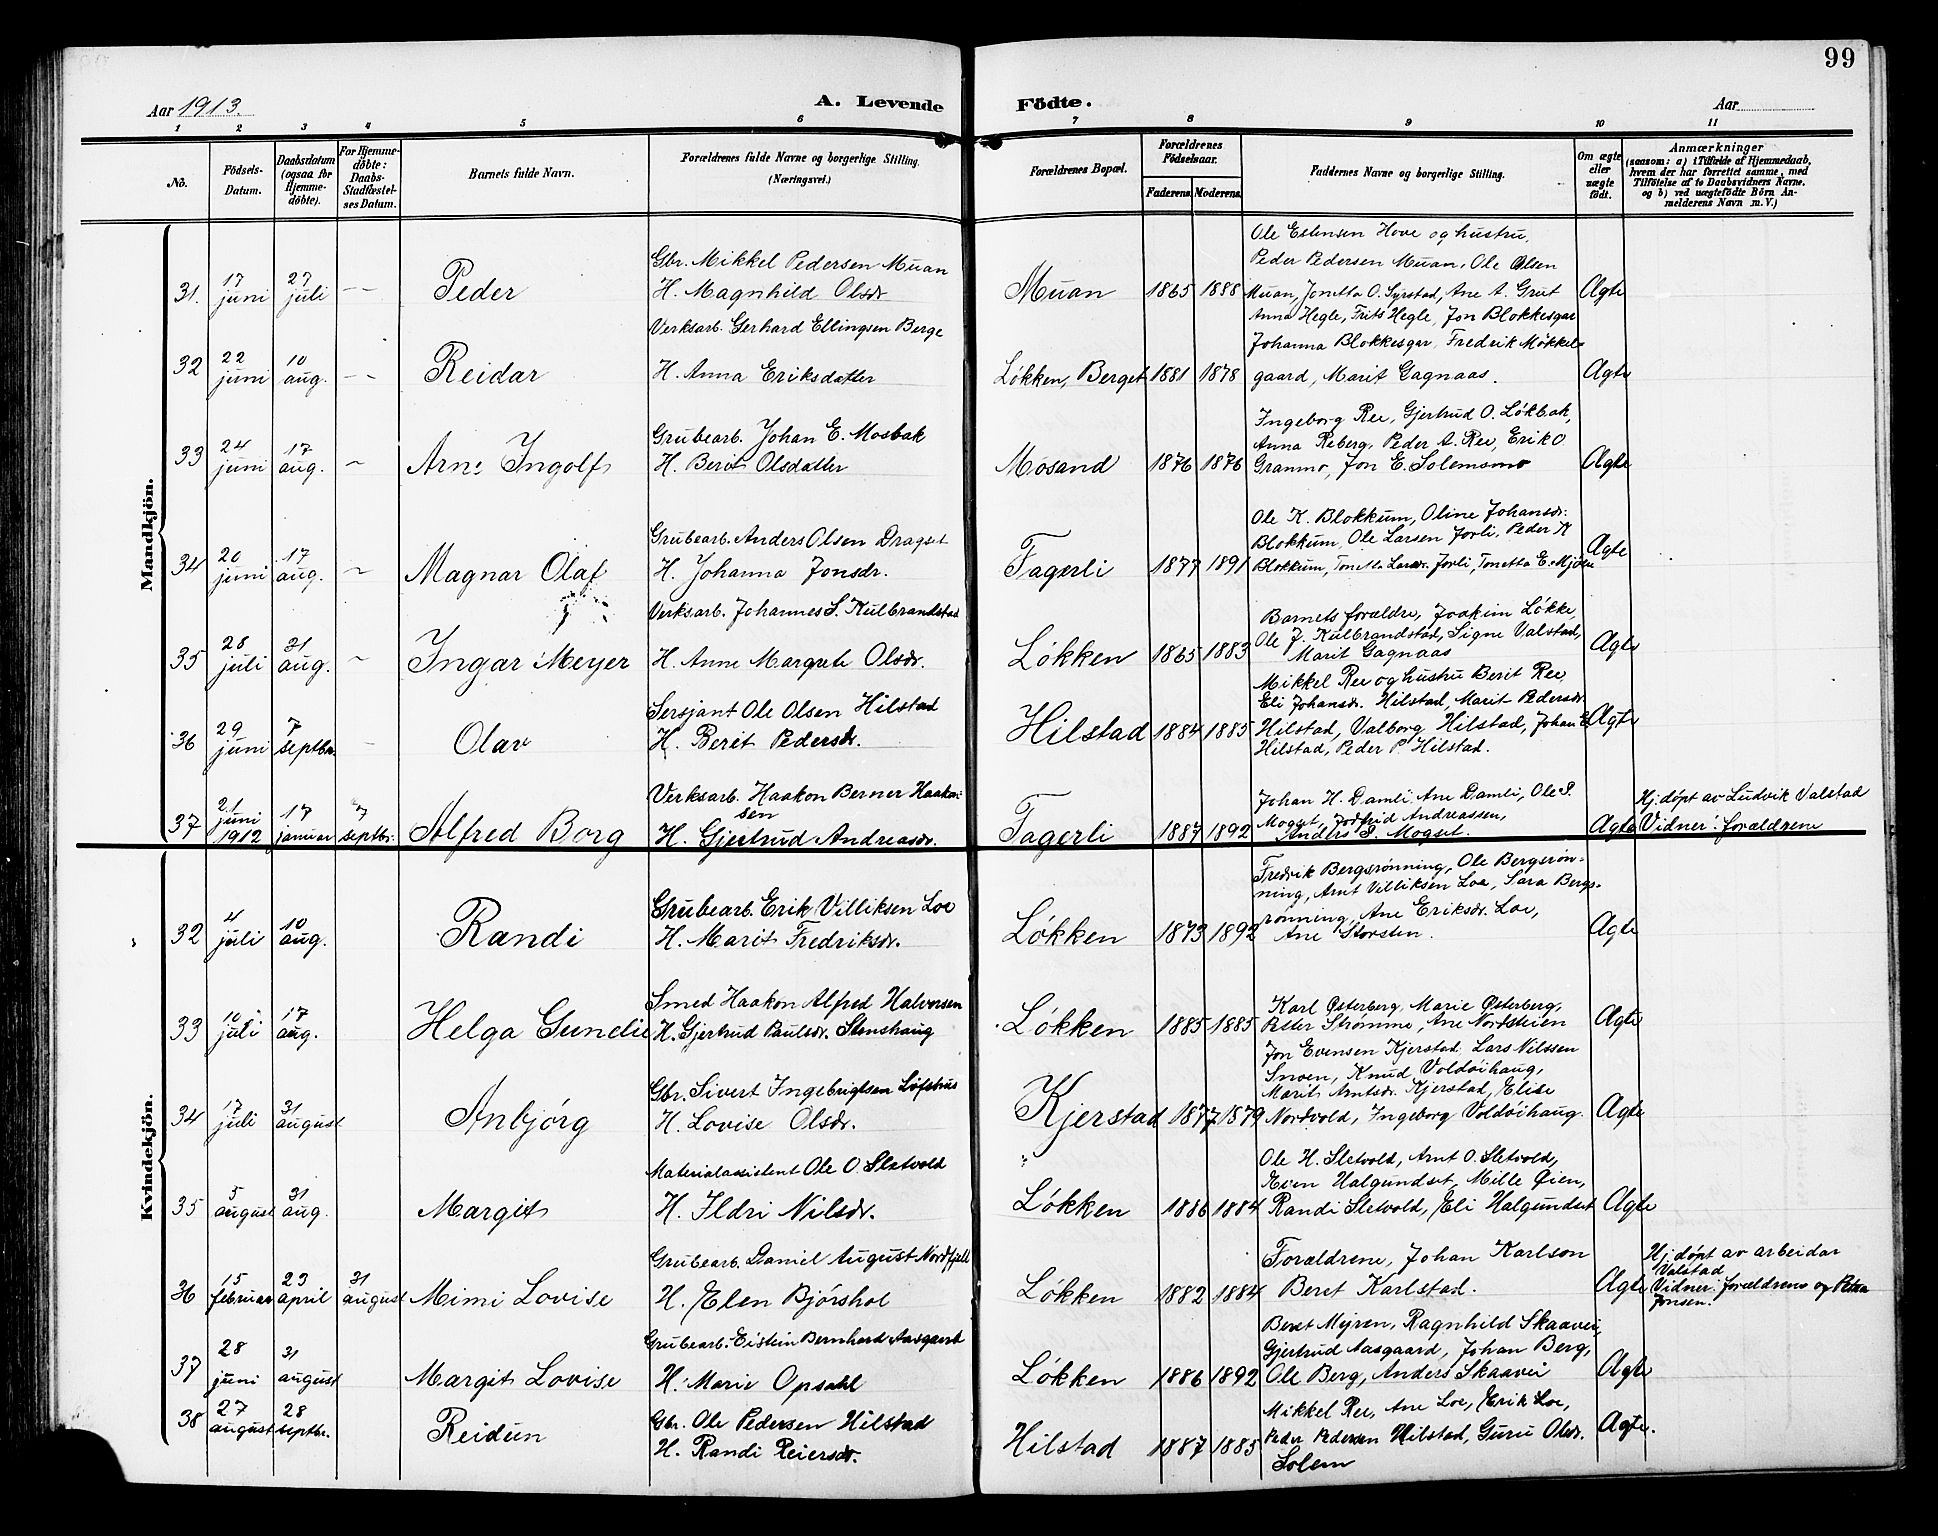 99
Aar 1913.
A. Levende Födte.
Aar
1 2 3 4 5 6 7 8 9 10 11
No.
Födsels-
Datum.
Daabsdatum
(ogsaa for
Hjemme-
döbte).
For Hjemme-
döbte:
Daabs-
Stadfæstel-
ses Datum.
Barnets fulde Navn.
Forældrenes fulde Navne og borgerlige Stilling.
(Næringsvei.)
Forældrenes Bopæl.
Forældrenes
Födselsaar.
Faderens. Moderens.
Faddernes Navne og borgerlige Stilling.
Om ægte
eller
uægte
født.
Anmærkninger
(saasom: a) i Tilfælde af Hjemmedaab,
hvem der har forrettet samme, med
Tilföielse af to Daabsvidners Navne.
og b) ved uægtefödte Börn An-
melderens Navn m. V.)
Mandkjön.
31. 17 juni 27 juli -- Peder
Gbr. Mikkel Pedersen Muan
H. Magnhild Olsdr
Muan 1865 1888
Ole Estensen Hove og hustru,
Peder Pedersen Muan, Ole Olsen
Muan, Jonetta O. Syrstad, Ane A. Grut
Ægte
32 22 juni 10 aug. -- Reidar
Verksarb. Gerhard Ellingsen Berge
H. Anna Eriksdatter
Løkken, Berget 1881 1878
Anna Hegle, Frits Hegle, Jon Blokkesgar
Johanna Blokkesgar, Fredrik Møkkel-
gaard, Marit Gagnaas.
Ægte
33 24 juni 17 aug. ~ Arne Ingolf
Grubearb. Johan E. Mosbak
H. Berit Olsdatter
Mosand 1876 1876
Ingeborg Ree, Gjertrud O. Løkbak,
Anna Reberg, Peder A. Ree, Erik O
Granmo, Jon E. Solemsmo
Ægte
34 20 juni 17 aug. ~ Magnar Olaf
Grubearb. Anders Olsen Dragset
H. Johanna Jonsdr.
Fagerli 1877 1891
Ole K. Blokkum, Oline Johansdr.
Blokkum, Ole Larsen Jorli, Peder K
Blokkum, Tonetta Larsdr. Jorli, Tonetta E. Mjøen
Ægte
35 28 juli 31 aug. ~ Ingar Meyer
Verksarb. Johannes S. Kulbrandstad
H. Anne Margrete Olsdr.
Løkken 1865 1883
Barnets forældre, Joakim Løkke,
Ole J. Kulbrandstad, Signe Valstad,
Marit Gagnaas
Ægte
36 29 juni 7 septbr. - Olav
Sersjant Ole Olsen Hilstad
H. Berit Pedersdr.
Hilstad 1884 1885
Mikkel Ree og hustru Berit Ree,
Eli Johansdr. Hilstad, Marit Pedersdr.
Hilstad, Valborg Hilstad, Johan E
Hilstad, Peder P Hilstad.
Ægte
37 21 juni 1912 17 januar 7 septbr. Alfred Borg
Verksarb. Haakon Berner Haakon-
sen
H. Gjertrud Andreasdr.
Fagerli 1887 1892
Johan H. Damli, Ane Damli, Ole S.
Mogset, Jodfrid Andreassen,
Anders S. Mogset.
Ægte
Hj.døpt av Ludvik Valstad
Vidner: forældrene
Kvindekjön.
32 4 juli 10 aug. Randi
Grubearb. Erik Villiksen Loe
H. Marit Fredriksdr.
Løkken 1873 1892
Fredrik Bergsrønning, Ole Bergsrøn-
ning, Arnt Villiksen Loe, Sara Bergs-
rønning, Ane Eriksdr. Loe,
Ane Storsten.
Ægte
33 10 juli 17 aug. Helga Gundie
Smed Haakon Alfred Halvorsen
H. Gjertrud Paulsdr. Stenshaug
Løkken 1885 1885
Karl Østerberg, Marie Østerberg,
Peter Strømme, Ane Nordsteien
Ægte
34 17 juli 31 august Anbjørg
Gbr. Sivert Ingebrigtsen Løfthus
H. Lovise Olsdr.
Kjerstad 1877 1879
Jon Evensen Kjerstad, Lars Nilssen
Snoen, Knud Voldøihaug,
Marit Arntsdr. Kjerstad, Elise
Nordvold, Ingeborg Voldøihaug.
Ægte
35 5 august 31 aug. Margit
Materialassistent Ole O. Sletvold
H. Ildri Nilsdr.
Løkken 1886 1884
Ole H. Sletvold, Arnt O. Sletvold,
Even Halgundset, Mille Øien,
Randi Sletvold, Eli Halgundset
Ægte
36 15 februar 23 april 31 august Mimi Lovise
Grubearb. Daniel August Nordfjell
H. Elen Bjørshol
Løkken 1882 1884
Forældrene, Johan Karlson
Beret Karlstad.
Ægte
Hj.døpt av arbeidar
Valstad
Vidner: forældrene og Petra
Jonsen.
37 28 juni 31 august Margit Lovise
Grubearb. Eistein Bernhard Aasgaard
H. Marie Opsahl
Løkken 1886 1892
Beret Myren, Ragnhild Skaavei,
Gjertrud Aasgaard, Johan Berg,
Ole Berg, Anders Skaavei
Ægte
38 27 august 28 septbr. Reidun
Gbr. Ole Pedersen Hilstad
H. Randi Reiersdr.
Hilstad 1887 1885
Mikkel Ree, Ane Loe, Erik Loe,
Peder Pedersen Hilstad, Guru Olsdr.
Solem
Ægte.